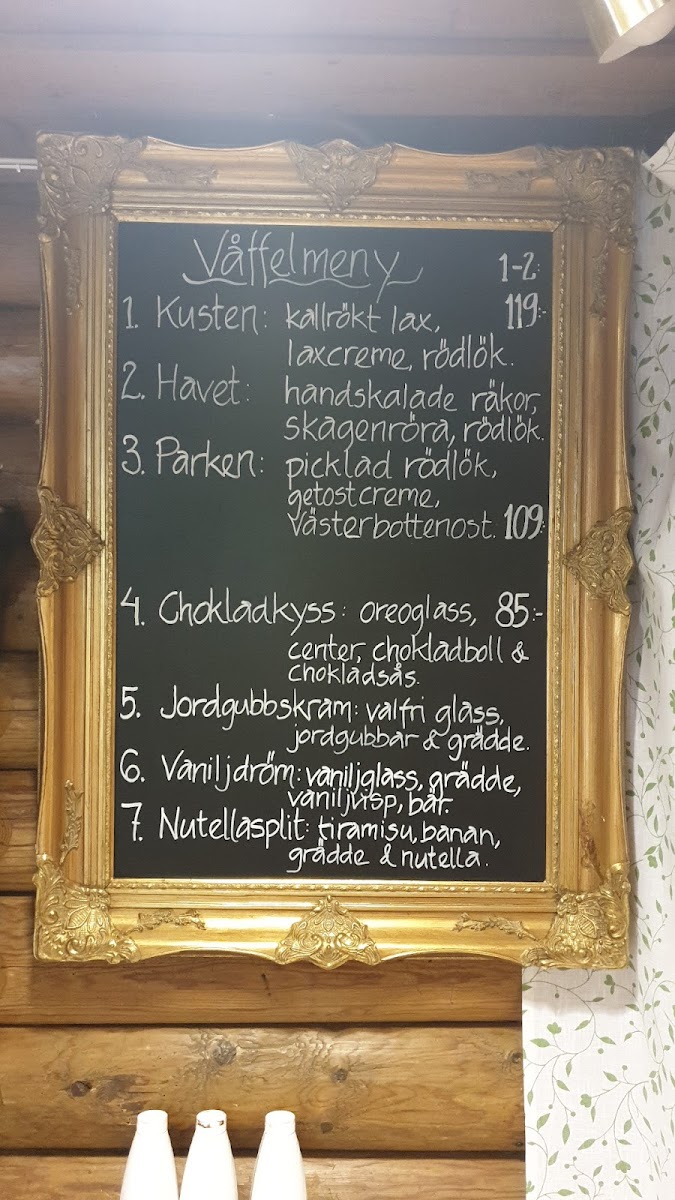 Våffelmeny 1-2:
1. Kusten: kallrökt lax, 119:-
laxcreme, rödlök.
2. Havet: handskalade räkor,
skagenröra, rödlök.
3. Parken: picklad rödlök,
getostcreme,
västerbottenost. 109:-
4. Chokladkyss: oreoglass, 85:-
center, chokladboll &
chokladsås.
5. Jordgubbskram: valfri glass,
jordgubbar & grädde.
6. Vaniljdröm: vaniljglass, grädde,
vaniljvisp, bär.
7. Nutellasplit: tiramisu, banan,
grädde & nutella.